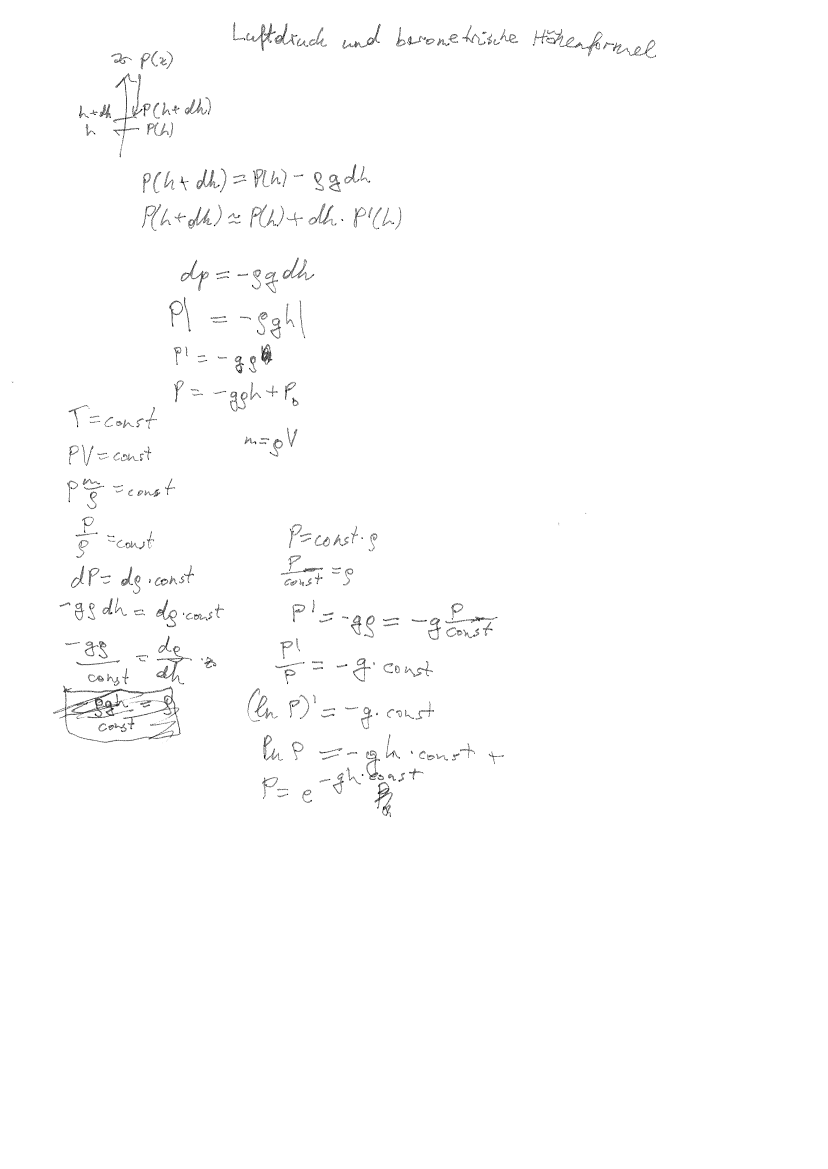 Luftdruck und barometrische Höhenformel
z P(z)
h+dh P(h+dh)
h P(h)
P(h+dh) = P(h) - ρgdh
P(h+dh) ≈ P(h) + dh · P'(h)
dp = -ρgdh
P| = -ρgh|
P' = -gρ
P = -gρh + P₀
T = const
m = ρV
PV = const
P m/ρ = const
P/ρ = const
P = const·ρ
P/const = ρ
dP = dρ·const
-gρdh = dρ·const
P' = -gρ = -g P/const
-gρ/const = dρ/dh
P'/P = -g·const
ρgh/const = ρ
(ln P)' = -g·const
ln P = -gh·const +
P = e^(-gh·const)